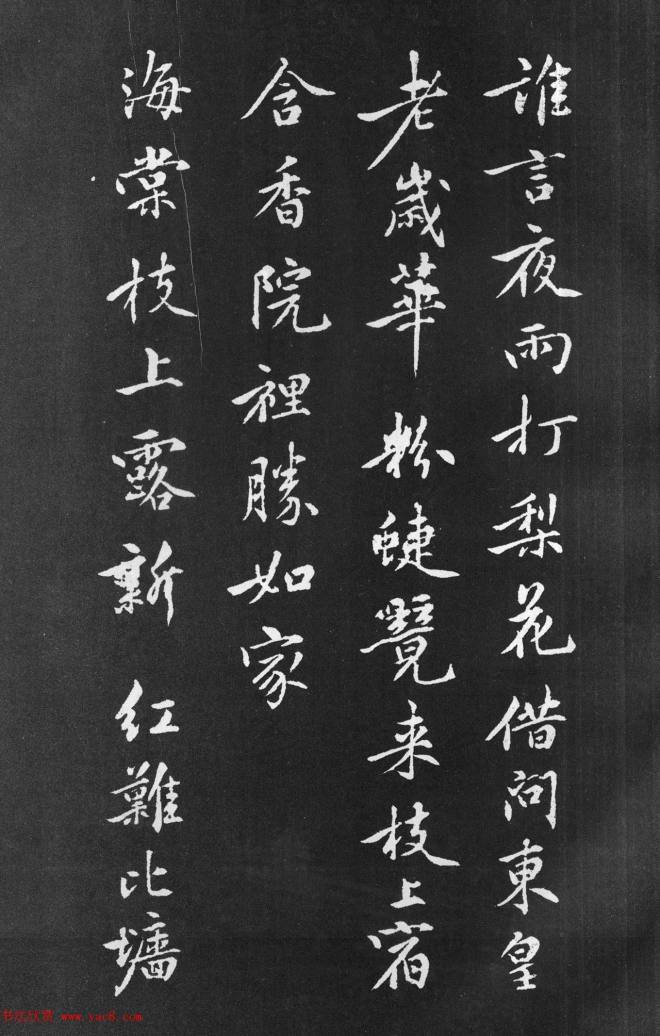 誰言夜雨打梨花借問東皇
老歲華 粉蜨覽来枝上宿
含香院裡勝如家
海棠枝上露新 紅難比墻
书法欣赏 www.yac8.com